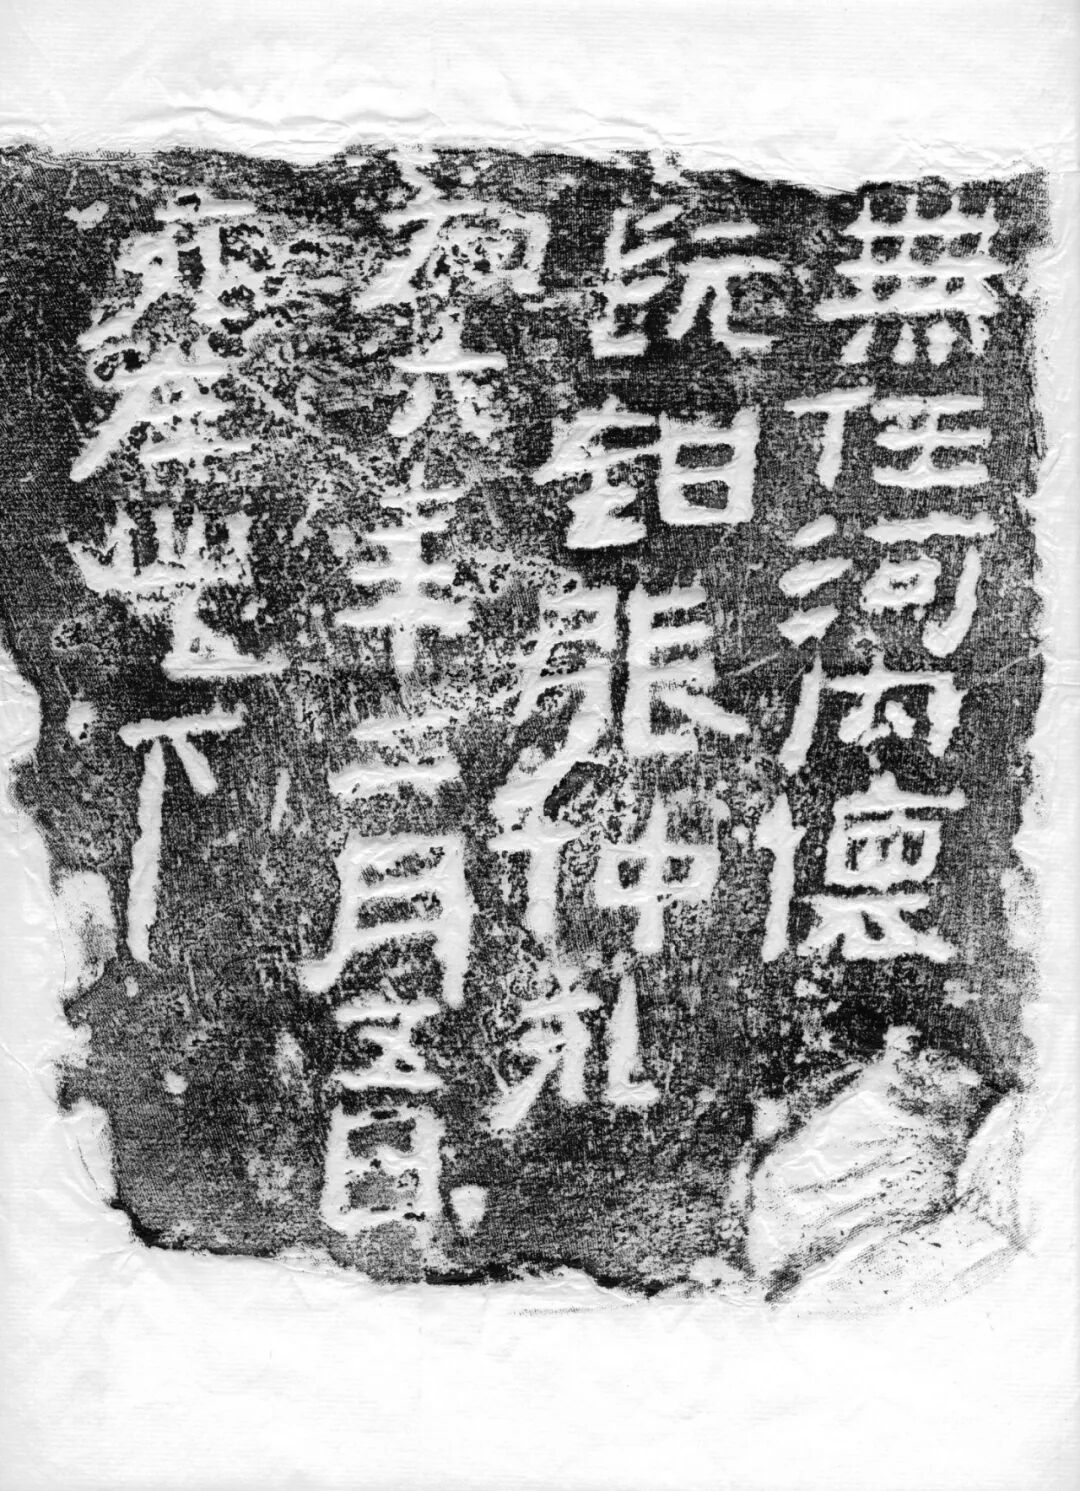 無任河内懷
髡鉗張仲元
初六年三月五日
死在此下